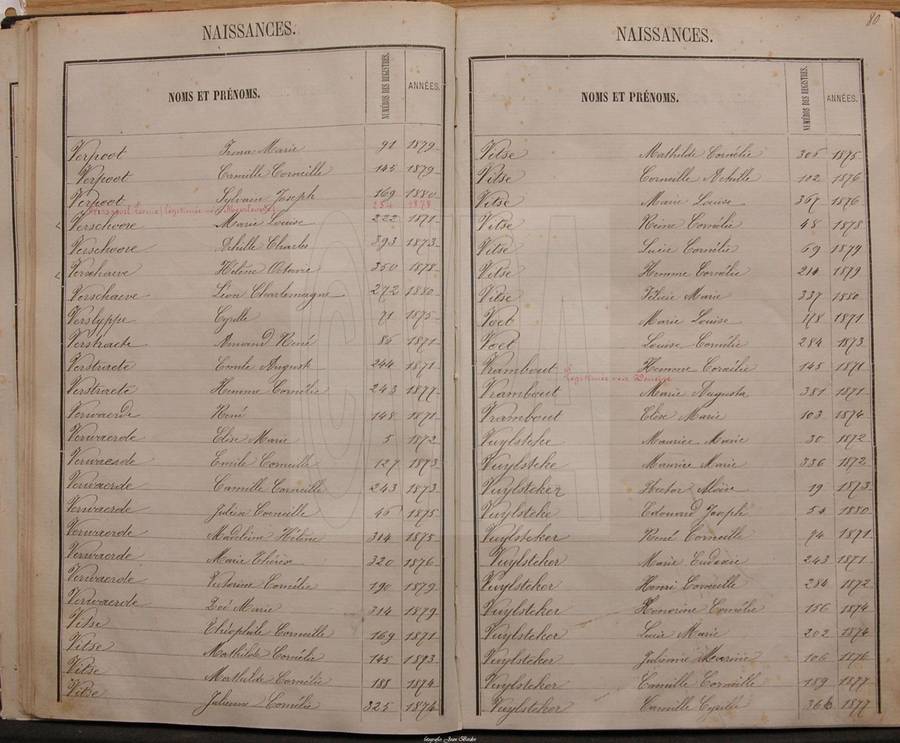 NAISSANCES.
NOMS ET PRÉNOMS. NUMÉROS DES REGISTRES. ANNÉES.
Verpoot Irma Marie 91 1879
Verpoot Camille Corneille 145 1879
Verpoot Sylvain Joseph 169 1880
254 1878
Verschoore Marie Louise 222 1871
Verschoore Achille Charles 393 1873
Verschaeve Hélène Octavie 350 1878
Verschaeve Léon Charlemagne 272 1880
Verslyppe Cyrille 71 1875
Verstraete Armand René 86 1871
Verstraete Emile August 244 1871
Verstraete Hemma Cornélie 243 1877
Verwaerde René 148 1871
Verwaerde Elise Marie 5 1872
Verwaerde Emile Corneille 127 1873
Verwaerde Camille Corneille 243 1873
Verwaerde Julien Corneille 45 1875
Verwaerde Madeleine Hélène 314 1875
Verwaerde Marie Thérèse 320 1876
Verwaerde Victorine Cornélie 190 1879
Verwaerde Zoé Marie 314 1879
Vitse Théophile Corneille 169 1871
Vitse Mathilde Cornélie 145 1873
Vitse Mathilde Cornélie 188 1874
Vitse Julienne Cornélie 325 1874
80
NAISSANCES.
NOMS ET PRÉNOMS. NUMÉROS DES REGISTRES. ANNÉES.
Vitse Mathilde Cornélie 305 1875
Vitse Corneille Achille 102 1876
Vitse Marie Louise 367 1876
Vitse Reine Cornélie 48 1878
Vitse Lucie Cornélie 69 1879
Vitse Hemma Cornélie 214 1879
Vitse Félicie Marie 337 1880
Voet Marie Louise 178 1871
Voet Louise Cornélie 284 1873
Vrambout Hemma Cornélie 145 1871
Vrambout Marie Augusta 381 1871
Vrambout Elise Marie 103 1874
Vuylsteke Maurice Marie 30 1872
Vuylsteke Maurice Marie 336 1872
Vuylsteker Hector Aloïse 19 1873
Vuylsteke Edouard Joseph 54 1880
Vuylsteker René Corneille 74 1871
Vuylsteker Marie Eudoxie 243 1871
Vuylsteker Henri Corneille 284 1872
Vuylsteker Honorine Cornélie 156 1874
Vuylsteker Lucie Marie 202 1874
Vuylsteker Julienne Marine 106 1876
Vuylsteker Camille Corneille 189 1877
Vuylsteker Camille Cyrille 366 1877